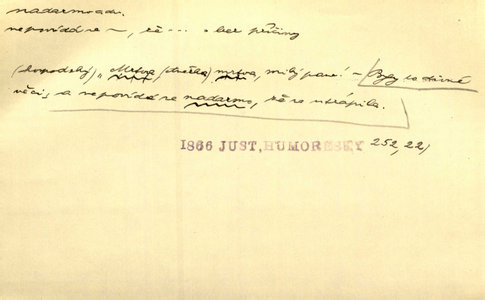 nadarmo adv.
nepovídá se ~, že --- = bez příčiny
(hospodský) „Mrtva (dcerka) mrtva, milý pane! – Byly to divné
věci, a nepovídá se nadarmo, že se utrápila.
1866 JUST, HUMORESKY 252, 22/